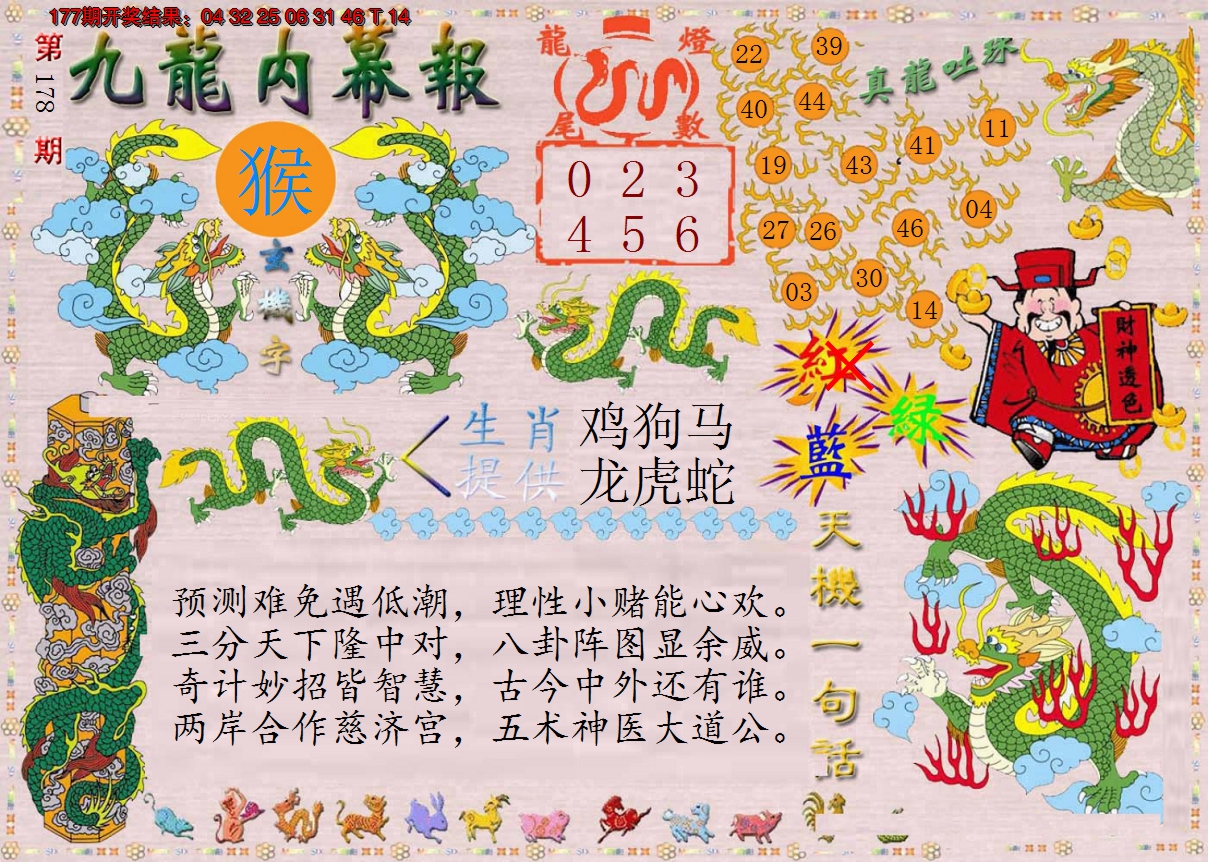 177期开奖结果：04 32 25 06 31 46 T 14
第178期
九龍内幕報
猴
玄機字
龍燈
尾數
0 2 3
4 5 6
真龍吐珠
22 39
40 44
19 43 41 11
27 26 46 04
03 30 14
財神透色
紅
綠
藍
生肖
提供
鸡狗马
龙虎蛇
天機一句话
预测难免遇低潮，理性小赌能心欢。
三分天下隆中对，八卦阵图显余威。
奇计妙招皆智慧，古今中外还有谁。
两岸合作慈济宫，五术神医大道公。